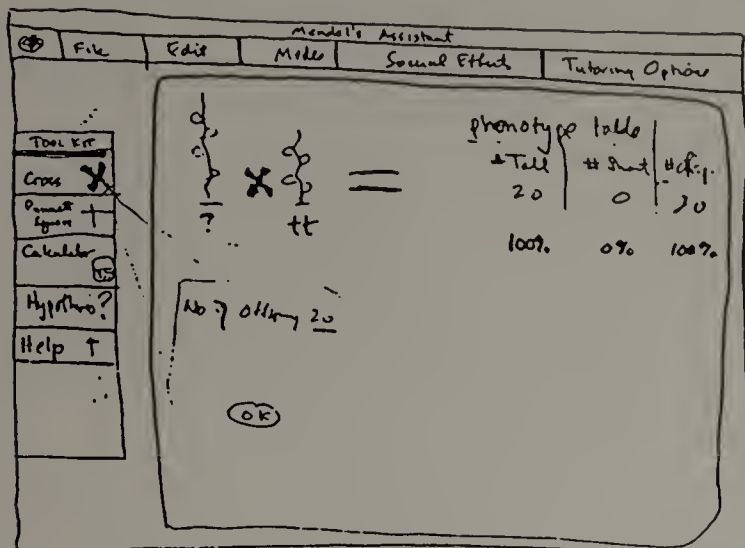 Mendel's Assistant
File Edit Modes Special Effects Tutoring Options
TOOL KIT
Cross
Punnett Square
Calculator
Hypothesis?
Help ↑
? X tt =
phenotype table
# Tall # Short
20 0
100% 0% 100%
No of offspring 20
OK